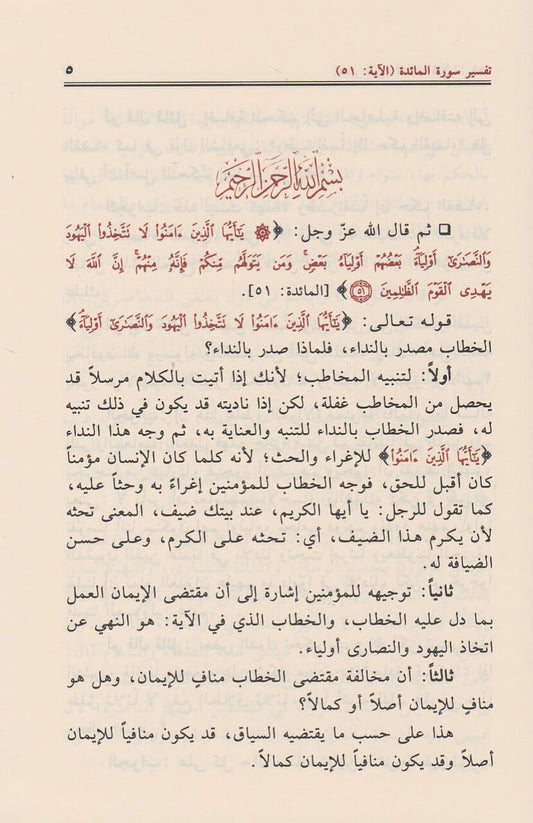 تفسير سورة المائدة (الآية: ٥١) ٥
بسم الله الرحمن الرحيم
❑ ثم قال الله عزّ وجل: ﴿۞ يَٰٓأَيُّهَا ٱلَّذِينَ ءَامَنُوا۟ لَا تَتَّخِذُوا۟ ٱلْيَهُودَ
وَٱلنَّصَٰرَىٰٓ أَوْلِيَآءَۘ بَعْضُهُمْ أَوْلِيَآءُ بَعْضٍۚ وَمَن يَتَوَلَّهُم مِّنكُمْ فَإِنَّهُۥ مِنْهُمْۗ إِنَّ ٱللَّهَ لَا
يَهْدِى ٱلْقَوْمَ ٱلظَّٰلِمِينَ ۝٥١﴾ [المائدة: ٥١].
قوله تعالى: ﴿يَٰٓأَيُّهَا ٱلَّذِينَ ءَامَنُوا۟ لَا تَتَّخِذُوا۟ ٱلْيَهُودَ وَٱلنَّصَٰرَىٰٓ أَوْلِيَآءَۘ﴾
الخطاب مصدر بالنداء، فلماذا صدر بالنداء؟
أولاً: لتنبيه المخاطب؛ لأنك إذا أتيت بالكلام مرسلاً قد
يحصل من المخاطب غفلة، لكن إذا ناديته قد يكون في ذلك تنبيه
له، فصدر الخطاب بالنداء للتنبه والعناية به، ثم وجه هذا النداء
﴿يَٰٓأَيُّهَا ٱلَّذِينَ ءَامَنُوا۟﴾ للإغراء والحث؛ لأنه كلما كان الإنسان مؤمناً
كان أقبل للحق، فوجه الخطاب للمؤمنين إغراءً به وحثاً عليه،
كما تقول للرجل: يا أيها الكريم، عند بيتك ضيف، المعنى تحثه
لأن يكرم هذا الضيف، أي: تحثه على الكرم، وعلى حسن
الضيافة له.
ثانياً: توجيهه للمؤمنين إشارة إلى أن مقتضى الإيمان العمل
بما دل عليه الخطاب، والخطاب الذي في الآية: هو النهي عن
اتخاذ اليهود والنصارى أولياء.
ثالثاً: أن مخالفة مقتضى الخطاب منافٍ للإيمان، وهل هو
منافٍ للإيمان أصلاً أو كمالاً؟
هذا على حسب ما يقتضيه السياق، قد يكون منافياً للإيمان
أصلاً وقد يكون منافياً للإيمان كمالاً.